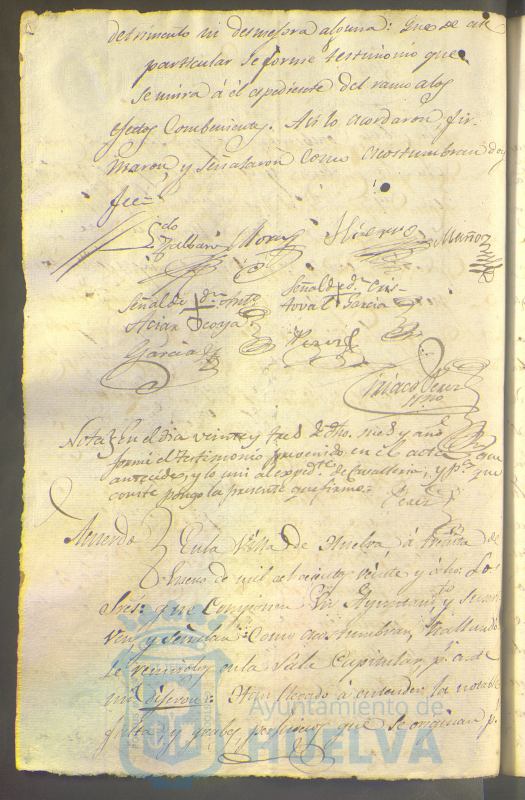 detrimento ni desmejora alguna: Que de este
particular se forme testimonio que
se unira á el espediente del ramo a los
efectos combenientes. Asi lo acordaron fir-
maron, y señalaron como acostumbran doy
feé=
Ldo
Zalbaro Mora Huerro Muñoz
Señal de dn Anto
Señal de dn Cris-
toval Garcia
Garcia
Perez
Ciriaco Perez
Nota En el dia veinte y tres de dho. mes y año
formé el testimonio prevenido en el acta que
antecede, y lo uni al expedte. de Cavalleria, y pa. que
conste pongo la presente que firmo=
Perez
Acuerdo
En la Villa de Huelva á treinta de
Enero de mil ochocientos veinte y ocho. Los
Sres: que componen su Ayuntamto. y suscri-
ven, y señalan como acostumbran, hallando
se reunidos en la Sala Capitular, p. ante
mi dijeron: Han llegado á entender la notable
falta, y graves perjuicios que se originan p.
Ayuntamiento de
HUELVA